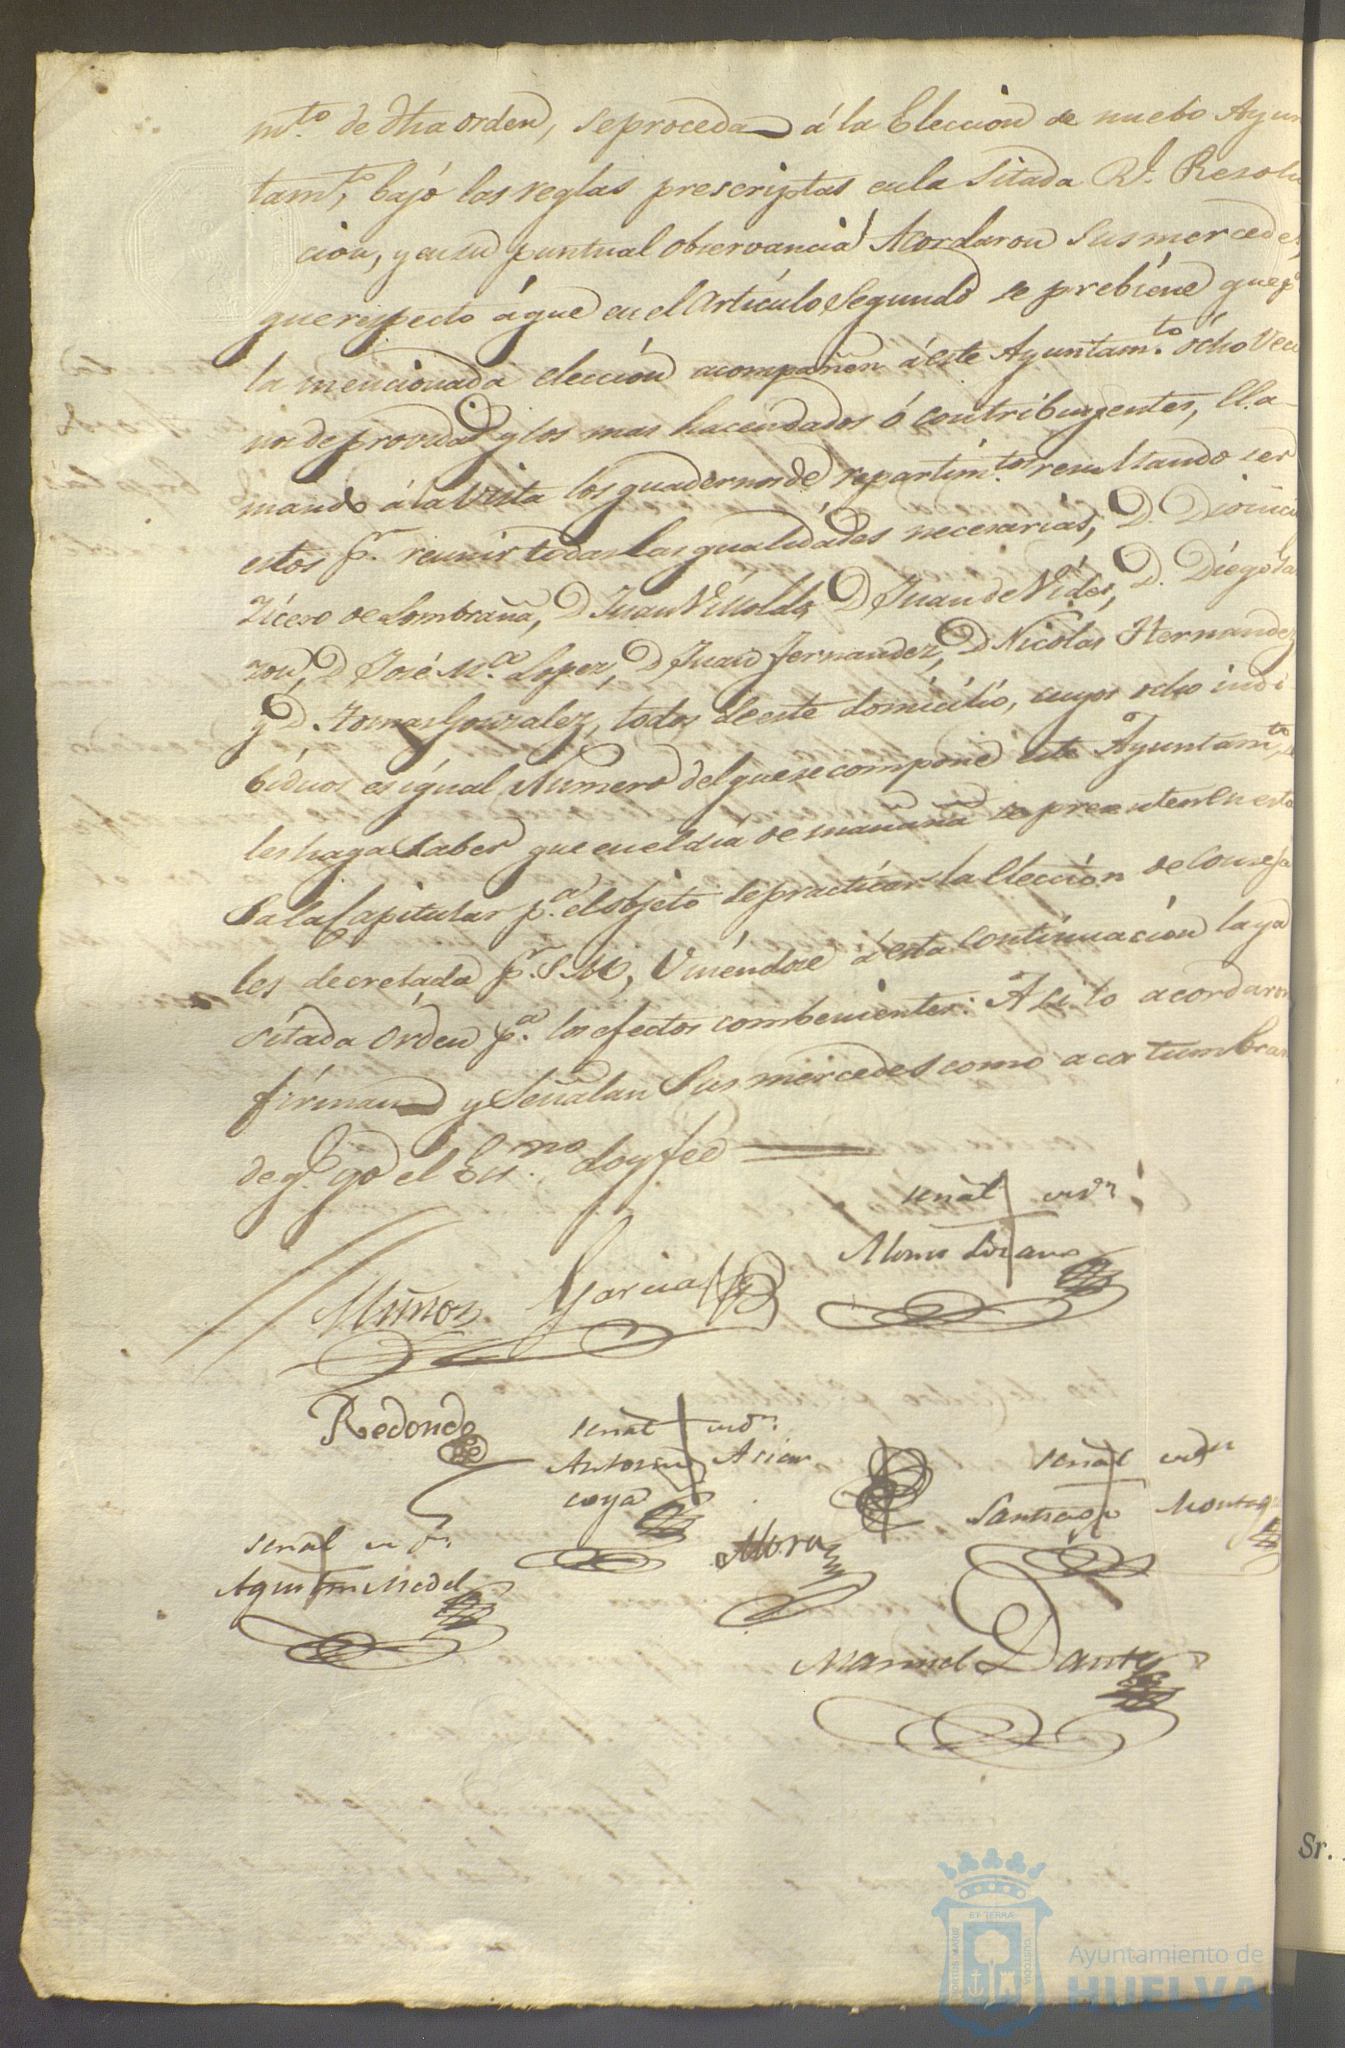 m.to de dha orden, se proceda á la Eleccion de nuebo Ayun
tam.to, bajo las reglas prescriptas en la Sitada R.l Resolu
cion, y en su puntual observancia Acordaron Sus mercedes
que respecto á que en el Artículo Segundo se prebiene que p.a
la mencionada elección acompañen á este Ayuntam.to ócho Veci
nos de provida y los mas hacendados ó contribuyentes, lla-
mando á la Vista los quadernos de repartim.tos resultando ser
estos p.r reunir todas las qualidades necesarias, D. Dionicio
Vicero de Lombraña, D Juan Villoldo, D Juan de Vides, D. Diego Ga
zon, D José M.a Lopez, D Juan Fernandez, D Nicolas Hernandez
y D. Tomas Gonzalez, todos de este domicilio, cuyos ocho indi-
biduos es igual Numero del que se compone este Ayuntam.to, se
les haga Saber que en el dia de mañana se presenten en esta
Sala Capitular p.a el objeto de practicar la Elección de Conseja
les decretada p.r S.M., Uniendose á esta continuacion la ya
sitada orden p.a los efectos combenientes: Asi lo acordaron
firman y Señalan Sus mercedes como acostumbran
de q.e yo el Es.no doy fee
señal
Muñoz Garcia Alonso Lozano
Redondo señal
Antonio
señal
Santiago
Mora
señal
Agustin Medel
Manuel Dante
Sr.
PORTUS MARIS ET TERRÆ CUSTODIA
Ayuntamiento de
HUELVA